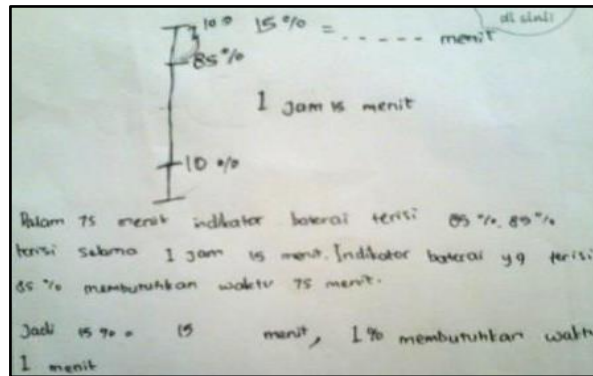 di sini
100 15% = ..... menit
85%
1 jam 15 menit
10 %
Dalam 75 menit indikator baterai terisi 85 %. 85 %
terisi selama 1 jam 15 menit. Indikator baterai yg terisi
85 % membutuhkan waktu 75 menit.
Jadi 15 % = 15 menit, 1% membutuhkan waktu
1 menit